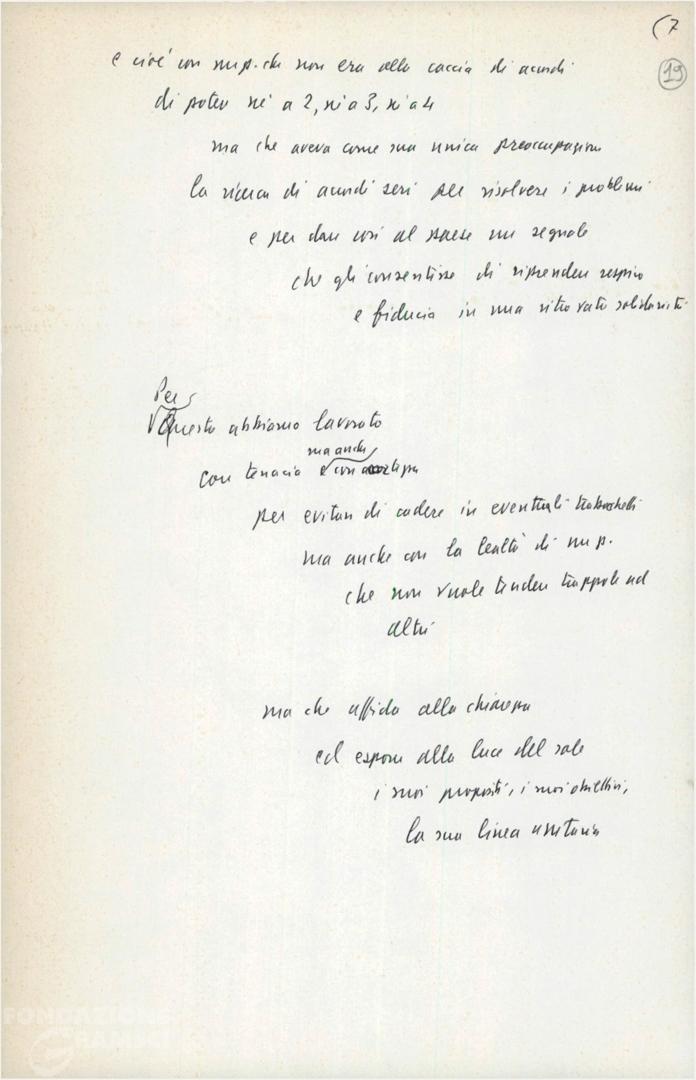 (7
19
e cioè con un p. che non era alla caccia di accordi
di potere né a 2, né a 3, né a 4
ma che aveva come sua unica preoccupazione
la ricerca di accordi seri per risolvere i problemi
e per dare così al paese un segnale
che gli consentisse di riprendere respiro
e fiducia in una ritrovata solidarietà
Per
Questo abbiamo lavorato
ma anche
con tenacia e con
per evitare di cadere in eventuali trabocchetti
ma anche con la lealtà di un p.
che non vuole tendere trappole ad
altri
ma che affida alla chiarezza
ed espone alla luce del sole
i suoi propositi, i suoi obiettivi,
la sua linea unitaria
FONDAZIONE
GRAMSCI